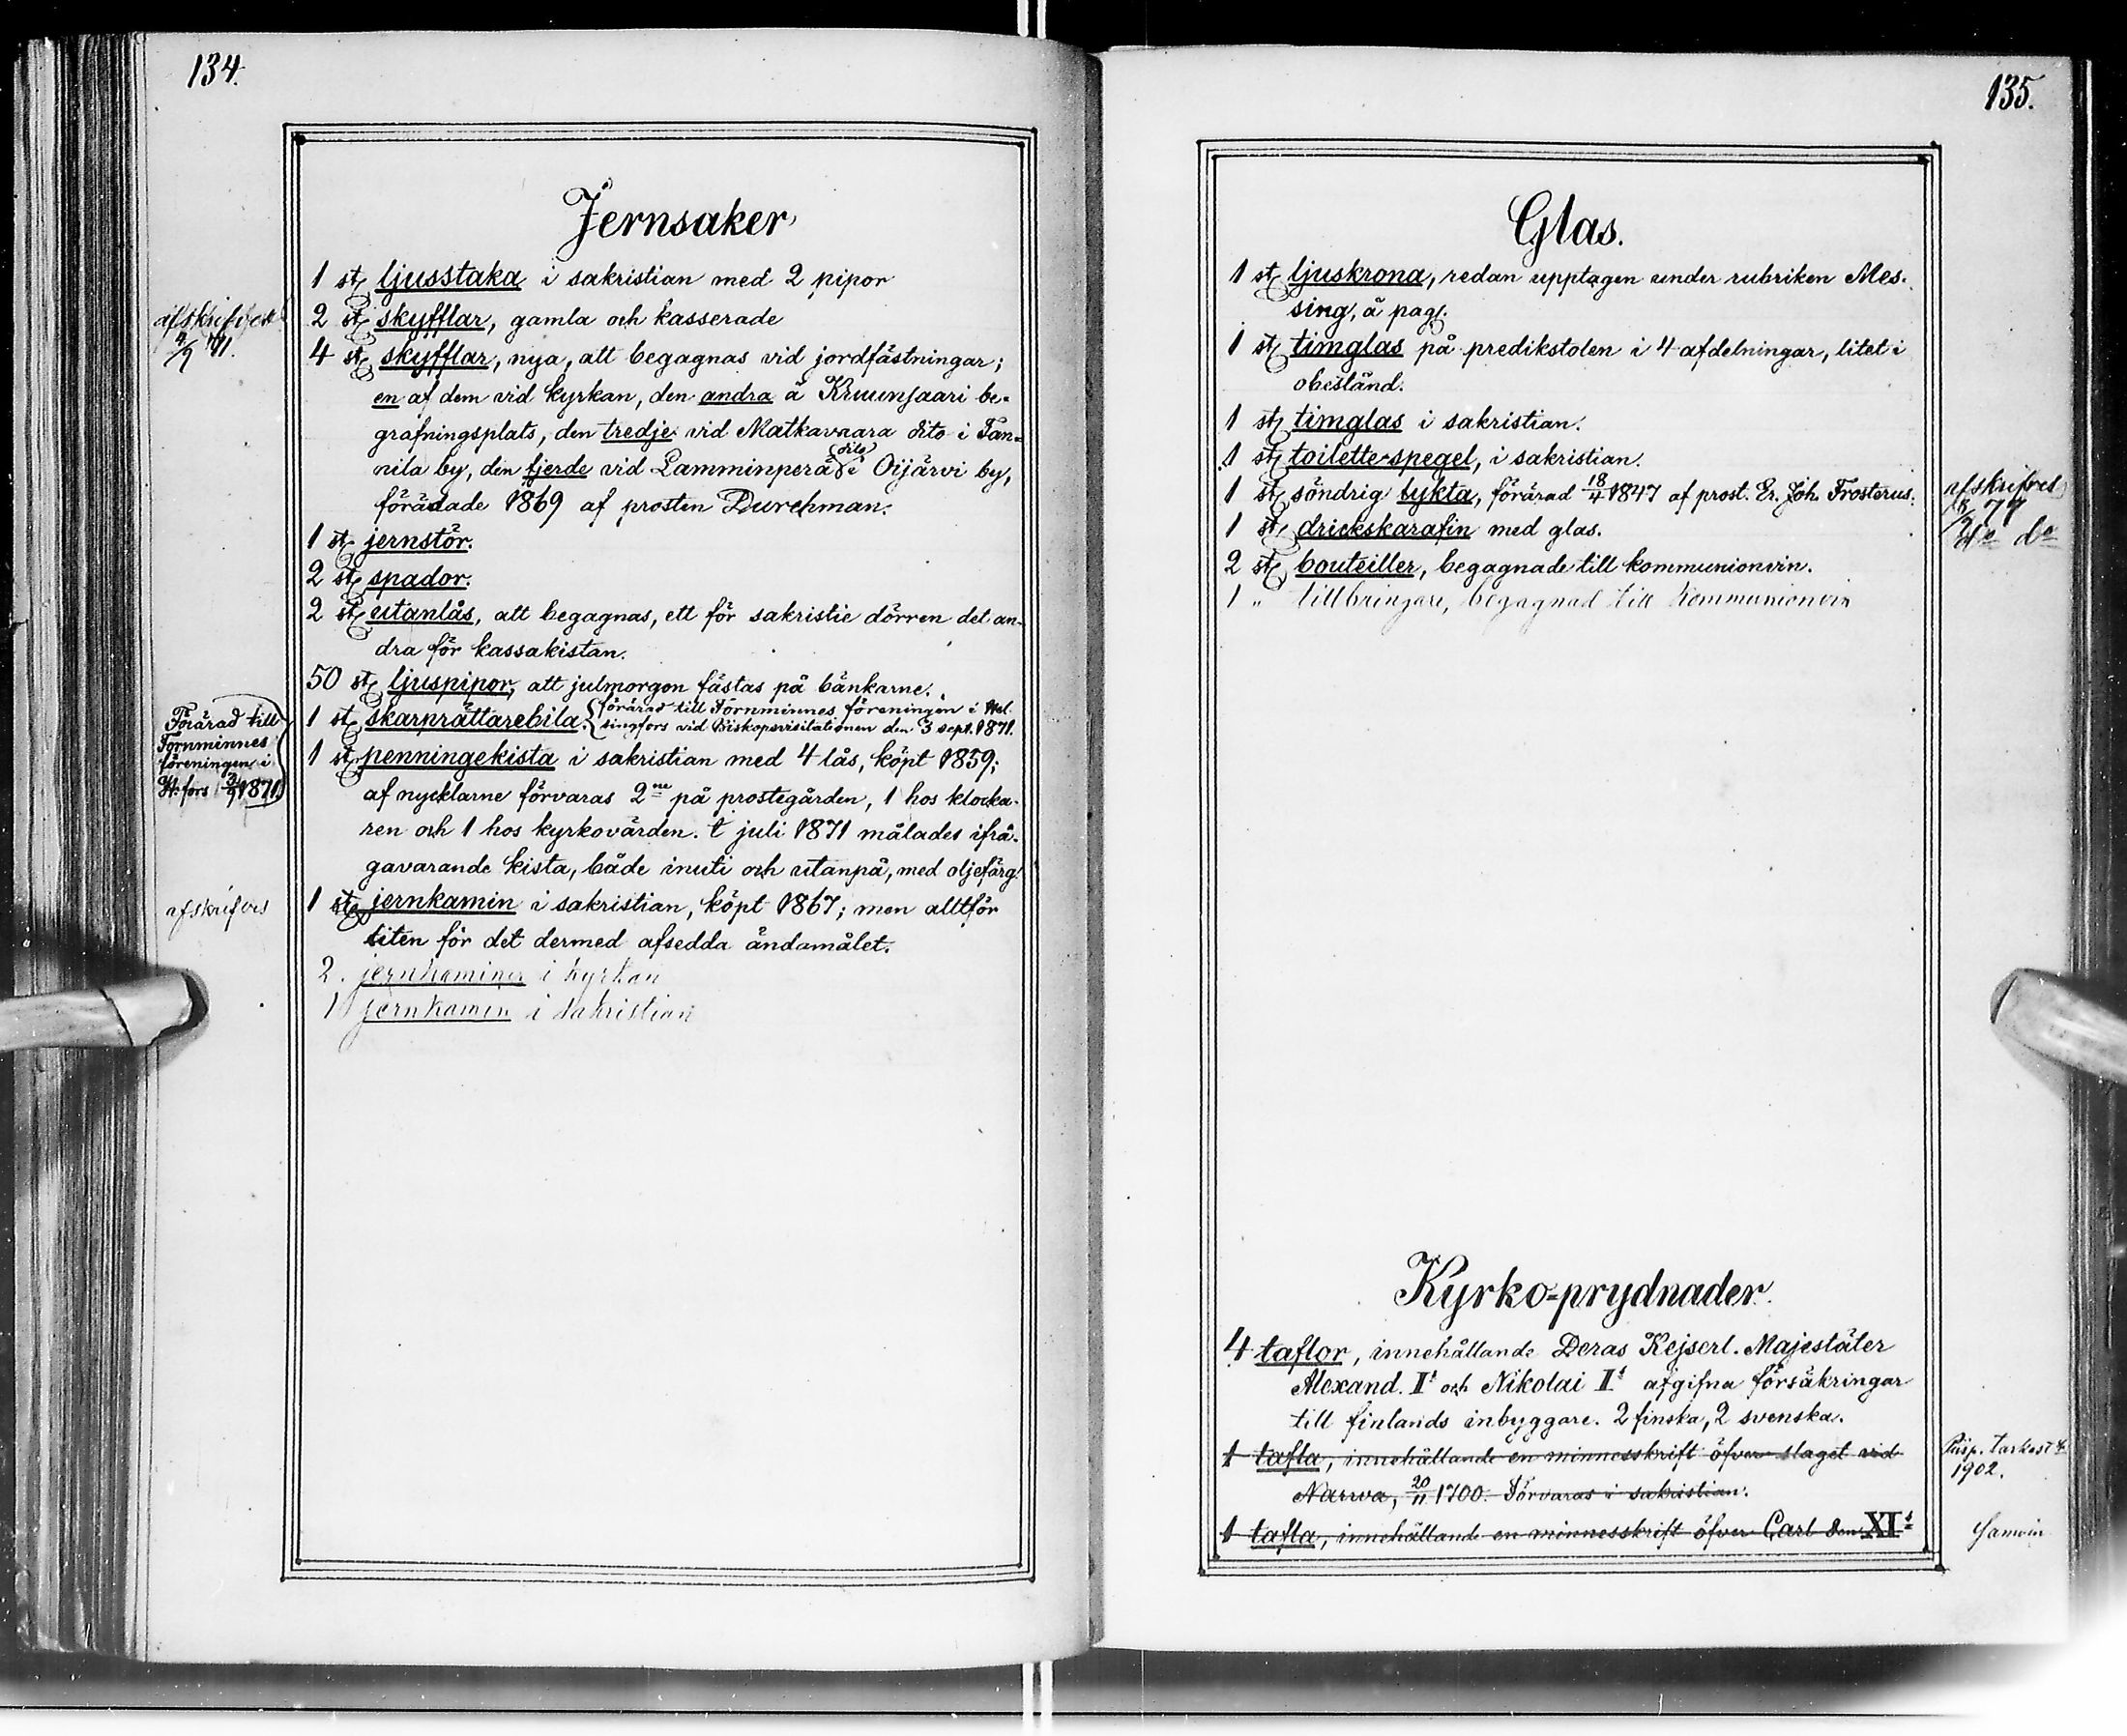 134.
Jernsaker
1 st. ljusstaka i sakristian med 2 pipor
afskrifves
2 st. skyfflar, gamla och kasserade
4 st. skyfflar, nya, att begagnas vid jordfästningar;
en af dem vid kyrkan, den andra å Kruunsaari be-
grafningsplats, den tredje vid Matkavaara dito i Tan-
nila by, den fjerde vid Lamminperä dito i Oijärvi by,
förärade 1869 af prosten Durchman.
1 st. jernstör.
2 st. spador.
2 st. utanlås, att begagnas, ett för sakristie dörren det an-
dra för kassakistan.
50 st. ljuspipor, att julmorgon fästas på bänkarne.
Förärad till
Fornminnes
föreningen i
H:fors 3/9 1871.
1 st. skarprättarebila. förärad till Fornminnes föreningen i Hel-
singfors vid Biskopsvisitationen den 3 sept. 1871.
1 st. penningekista i sakristian med 4 lås, köpt 1859;
af nycklarne förvaras 2ne på prostegården, 1 hos klocka-
ren och 1 hos kyrkovärden. I juli 1871 målades ifrå-
gavarande kista, både inuti och utanpå, med oljefärg.
afskrifves
1 st. jernkamin i sakristian, köpt 1867; men alltför
liten för det dermed afsedda ändamålet.
2. jernkaminer i kyrkan
1 jernkamin i sakristian
135.
Glas.
1 st. ljuskrona, redan upptagen under rubriken Mes-
sing, å pag.
1 st. timglas på predikstolen i 4 afdelningar, litet i
obestånd.
1 st. timglas i sakristian.
1 st. toilette-spegel, i sakristian.
1 st. söndrig lykta, förärad 18/4 1847 af prost. Er. Joh. Frosterus.
afskrifves
1 st. drickskarafin med glas.
do do
2 st. bouteiller, begagnade till kommunionvin.
1 " tillbringare, begagnad till kommunionvin
Kyrko-prydnader.
4 taflor, innehållande Deras Kejserl. Majestäter
Alexand. II:s och Nikolai II:s afgifna försäkringar
till finlands inbyggare. 2 finska, 2 svenska.
1 tafla, innehållande en minnesskrift öfver slaget vid
Narwa, 20/11 1700. Förvaras i sakristian.
Piisp. tarkast.
1902.
1 tafla, innehållande en minnesskrift öfver Carl den XI:s
Samoin